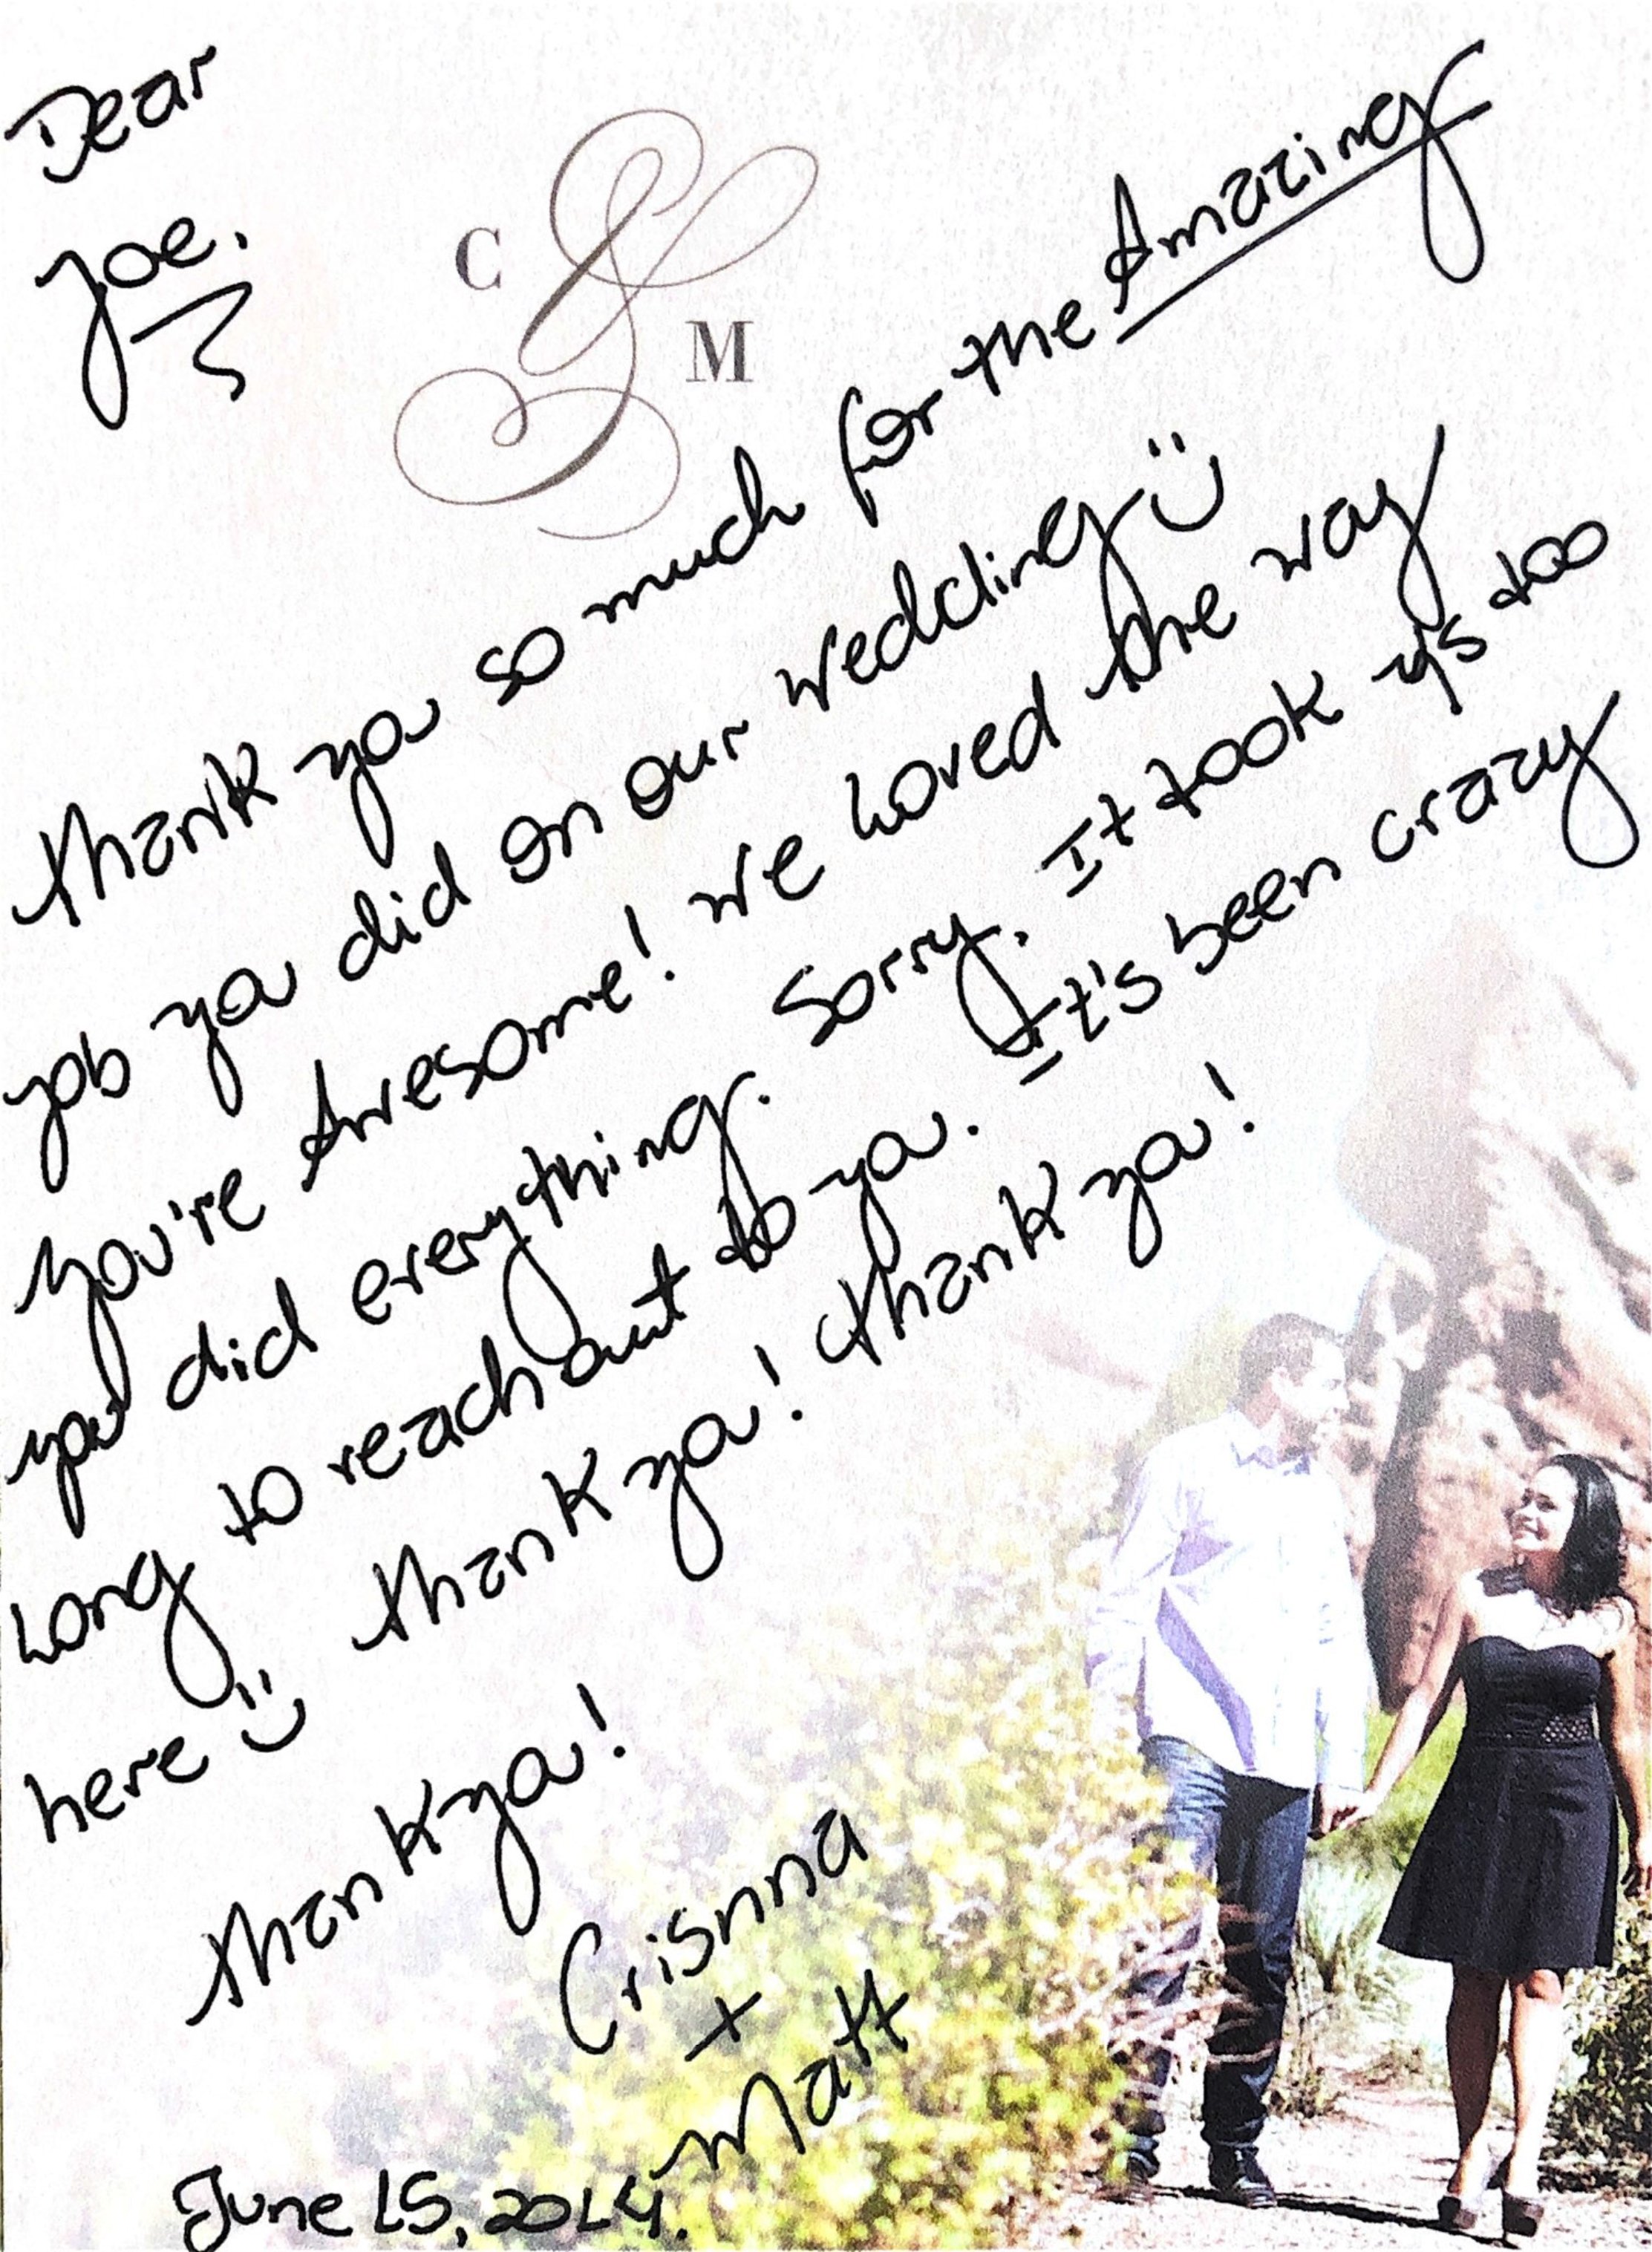 Dear
Joe,
C & M
Thank you so much for the Amazing
job you did on our wedding :)
You're Awesome! We Loved the way
you did everything. Sorry, It took us too
Long to reach out to you. It's been crazy
here :) Thank you! Thank you!
Thank you!
Crisnna
+
Matt
June 15, 2014.